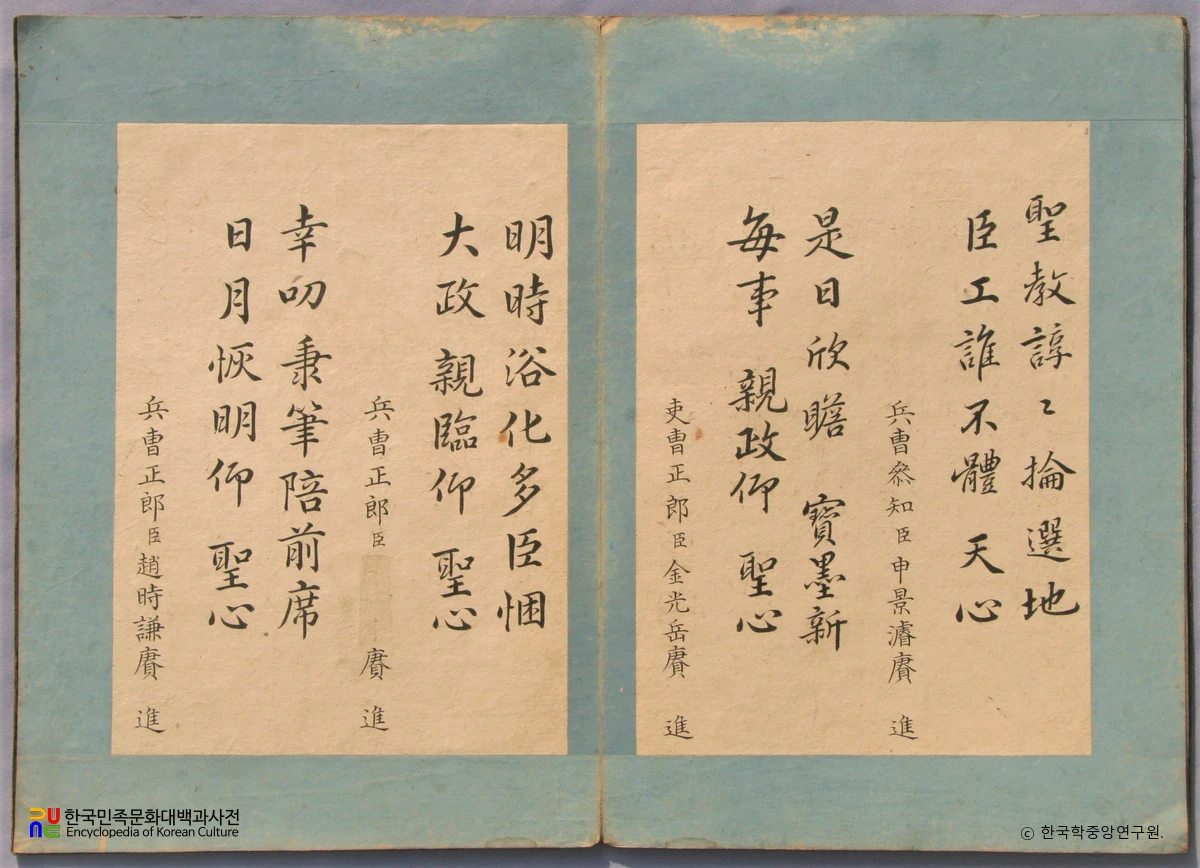 聖教諄〻掄選地
臣工誰不體 天心
兵曹參知臣申景濬賡 進
是日欣瞻 寶墨新
每事 親政仰 聖心
吏曹正郎臣金光岳賡 進
明時浴化多臣悃
大政 親臨仰 聖心
兵曹正郎臣 賡 進
幸叨秉筆陪前席
日月恢明仰 聖心
兵曹正郎臣趙時謙賡 進
한국민족문화대백과사전
Encyclopedia of Korean Culture
ⓒ 한국학중앙연구원.